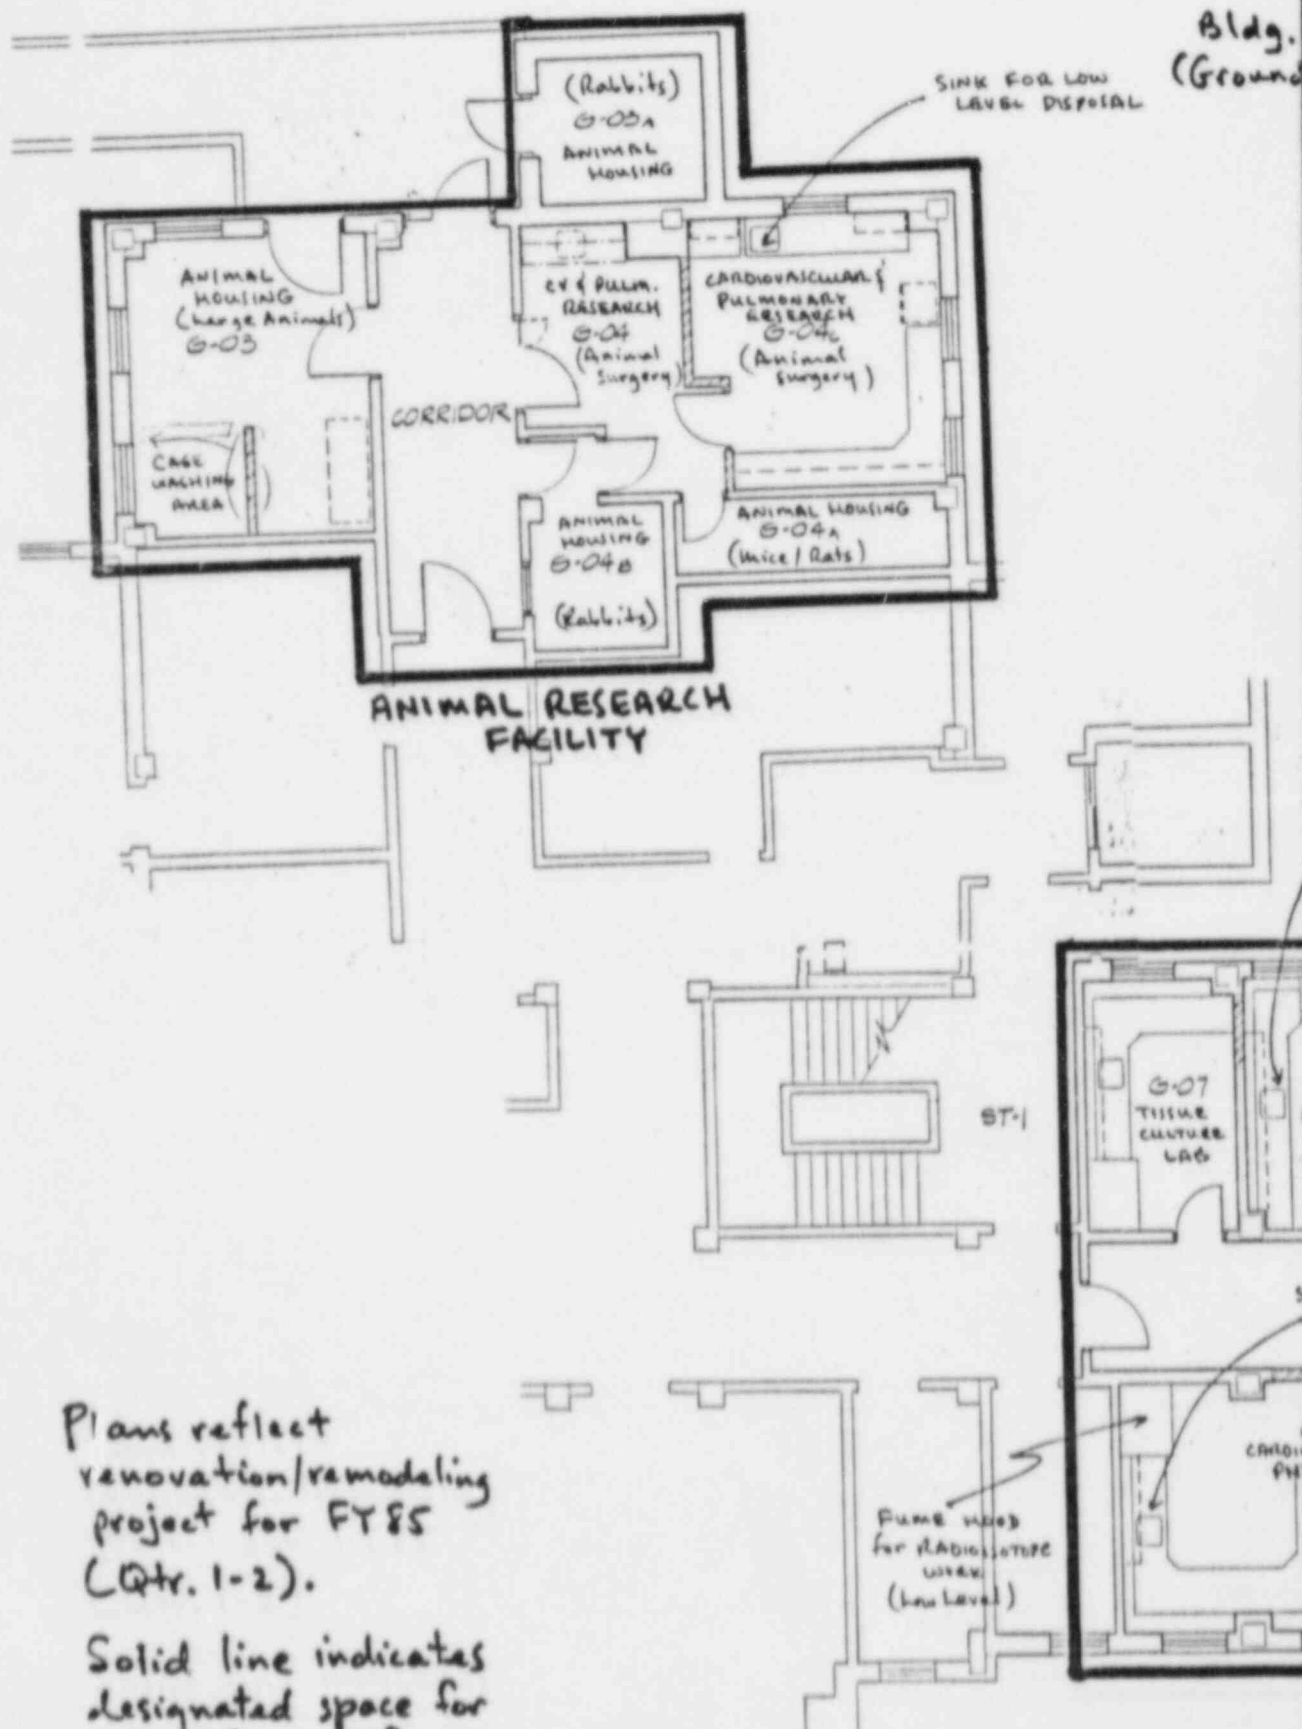 Bldg.
(Ground
SINK FOR LOW
LEVEL DISPOSAL
(Rabbits)
G-03A
ANIMAL
HOUSING
ANIMAL
HOUSING
(Large Animals)
G-03
CV & PULM.
RESEARCH
G-04
(Animal
Surgery)
CARDIOVASCULAR &
PULMONARY
RESEARCH
G-04C
(Animal
Surgery)
CORRIDOR
CAGE
WASHING
AREA
ANIMAL
HOUSING
G-04B
(Rabbits)
ANIMAL HOUSING
G-04A
(Mice/Rats)
ANIMAL RESEARCH
FACILITY
ST-1
G-07
TISSUE
CULTURE
LAB
S
CARDI
PH
FUME HOOD
for RADIOISOTOPE
WORK
(Low Level)
Plans reflect
renovation/remodeling
project for FY85
(Qtr. 1-2).
Solid line indicates
designated space for